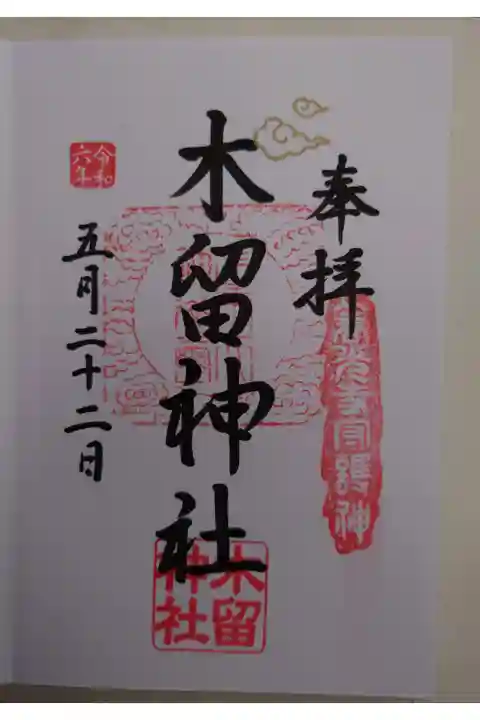 奉拝
木留神社
令和
六年
五月二十二日
木留
神社